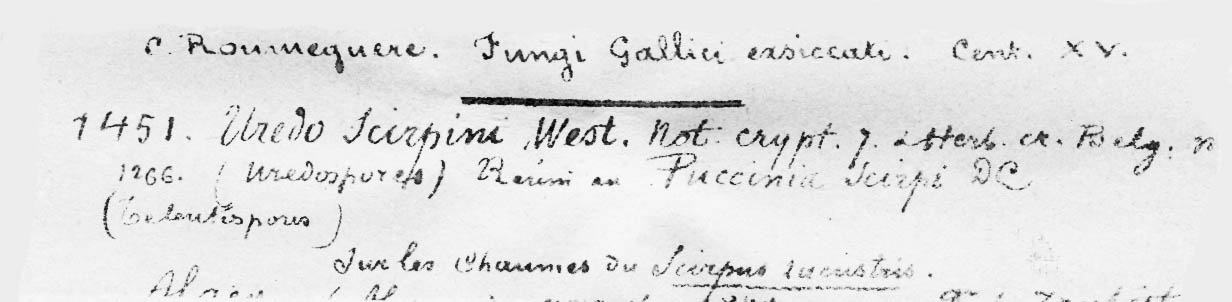 C. Roumeguere. Fungi Gallici exsiccati. Cent. XV.
1451. Uredo Scirpini West. Not. crypt. 7. & Herb. cr. Belg. n
1266. (Uredospores) Réuni au Puccinia Scirpi DC
(Teleutospores)
Sur les Chaumes du Scirpus lacustris.